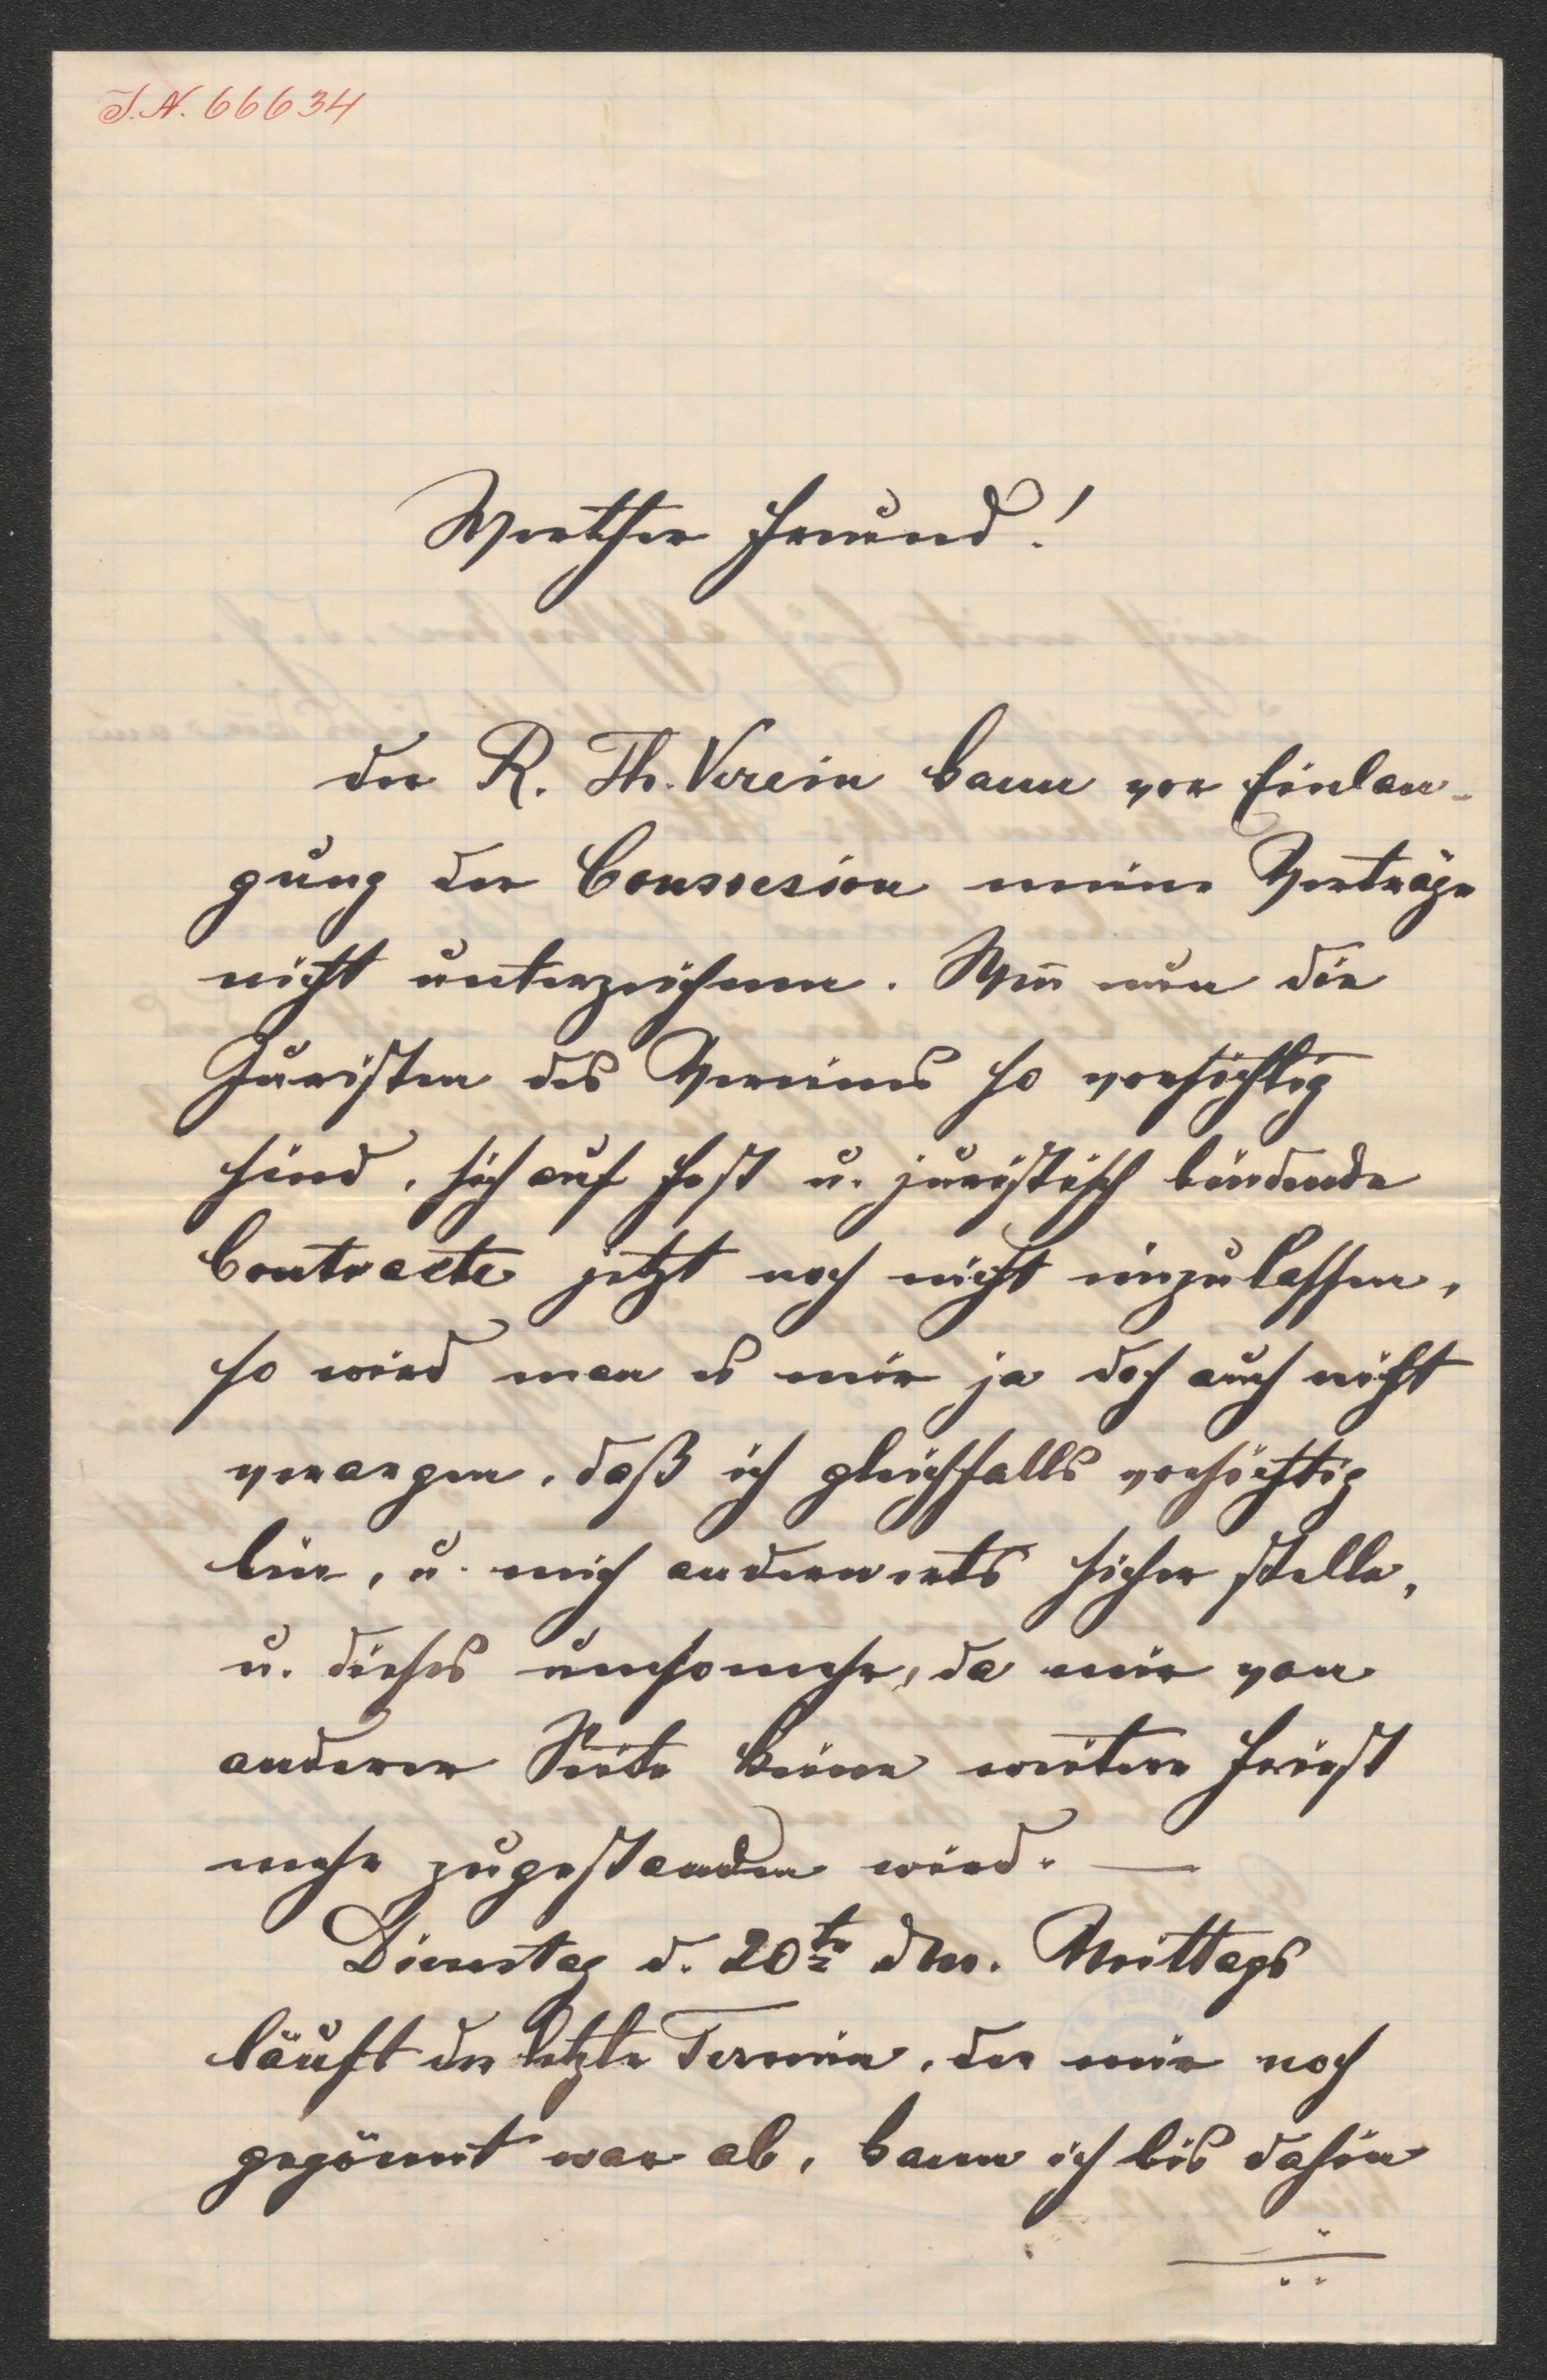 I.N. 66634
Werther Freund!
der R. Th. Verein kann vor Einlan-
gung der Conssesion meine Verträge
nicht unterzeichnen. Weñ nun die
Juristen des Vereines so vorsichtig
sind, sich auf fest u. juristisch bindende
Contracte jetzt noch nicht einzulassen,
so wird man es mir ja doch auch nicht
verargen, daß ich gleichfalls vorsichtig
bin, u. mich anderwerts sicher stelle,
u. dieses umsomehr, da mir von
anderer Seite keine weitere Friest
mehr zugestanden wird. —
Dienstag d. 20te dM. Mittags
läuft der letzte Termin, der mir noch
gegönnt war ab, kann ich bis dahin